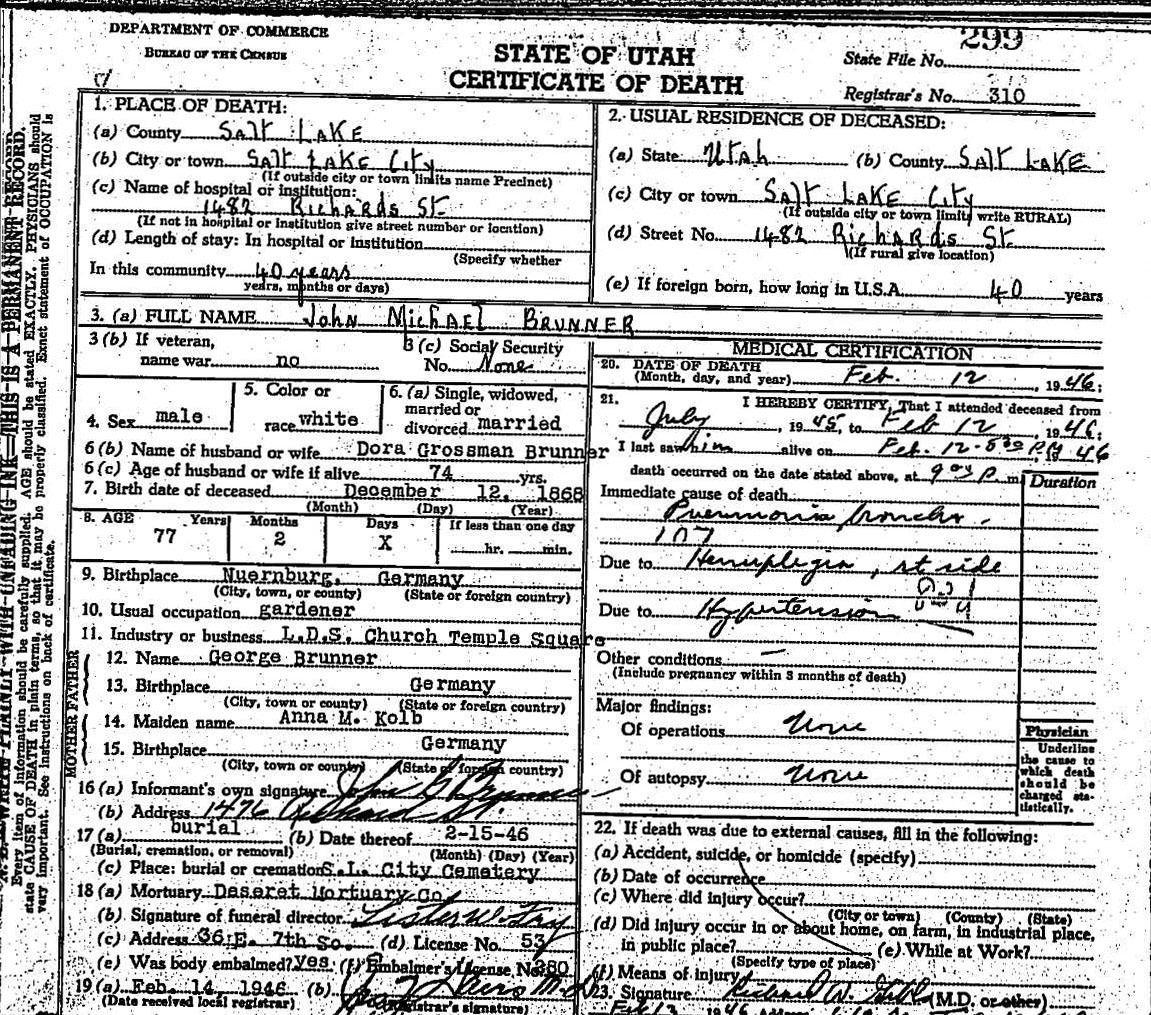 DEPARTMENT OF COMMERCE
BUREAU OF THE CENSUS
STATE OF UTAH
CERTIFICATE OF DEATH
299
State File No.
Registrar's No. 310
WRITE PLAINLY WITH UNFADING INK—THIS IS A PERMANENT RECORD.
Every item of information should be carefully supplied. AGE should be stated EXACTLY. PHYSICIANS should
state CAUSE OF DEATH in plain terms, so that it may be properly classified. Exact statement of OCCUPATION is
very important. See instructions on back of certificate.
1. PLACE OF DEATH:
(a) County SALT LAKE
(b) City or town SALT LAKE City
(If outside city or town limits name Precinct)
(c) Name of hospital or institution:
1482 Richards St.
(If not in hospital or institution give street number or location)
(d) Length of stay: In hospital or institution
(Specify whether
In this community 40 years
years, months or days)
2. USUAL RESIDENCE OF DECEASED:
(a) State Utah (b) County SALT LAKE
(c) City or town SALT LAKE City
(If outside city or town limits write RURAL)
(d) Street No. 1482 Richards St.
(If rural give location)
(e) If foreign born, how long in U.S.A. 40 years
3. (a) FULL NAME John Michael BRUNNER
3 (b) If veteran,
name war no
3 (c) Social Security
No. None
4. Sex male
5. Color or
race white
6. (a) Single, widowed,
married or
divorced married
6 (b) Name of husband or wife Dora Grossman Brunner
6 (c) Age of husband or wife if alive 74 yrs.
7. Birth date of deceased December 12, 1868
(Month) (Day) (Year)
8. AGE Years Months Days If less than one day
77 2 X hr. min.
9. Birthplace Nuernburg, Germany
(City, town, or county) (State or foreign country)
10. Usual occupation gardener
11. Industry or business L.D.S. Church Temple Square
FATHER
12. Name George Brunner
13. Birthplace Germany
(City, town or county) (State or foreign country)
MOTHER
14. Maiden name Anna M. Kolb
15. Birthplace Germany
(City, town or county) (State or foreign country)
16 (a) Informant's own signature John G Brunner
(b) Address 1476 Richards St.
17 (a) burial (b) Date thereof 2-15-46
(Burial, cremation, or removal) (Month) (Day) (Year)
(c) Place: burial or cremation S.L. City Cemetery
18 (a) Mortuary Deseret Mortuary Co.
(b) Signature of funeral director
(c) Address 36 E. 7th So. (d) License No. 53
(e) Was body embalmed? yes (f) Embalmer's License No. 380
19 (a) Feb. 14, 1946 (b)
(Date received local registrar) (Registrar's signature)
MEDICAL CERTIFICATION
20. DATE OF DEATH
(Month, day, and year) Feb. 12, 1946:
21. I HEREBY CERTIFY, That I attended deceased from
July, 1945, to Feb 12, 1946;
I last saw him alive on Feb. 12-5 30 P 1946
death occurred on the date stated above, at 9 P m.
Duration
Immediate cause of death
Pneumonia broncho.
107
Due to Hemiplegia, rt side
Due to Hypertension
Other conditions —
(Include pregnancy within 3 months of death)
Major findings:
Of operations None
Of autopsy None
Physician
Underline
the cause to
which death
should be
charged sta-
tistically.
22. If death was due to external causes, fill in the following:
(a) Accident, suicide, or homicide (specify)
(b) Date of occurrence
(c) Where did injury occur?
(City or town) (County) (State)
(d) Did injury occur in or about home, on farm, in industrial place,
in public place? (e) While at Work?
(Specify type of place)
(f) Means of injury
23. Signature Richard W. (M.D. or other)
1946